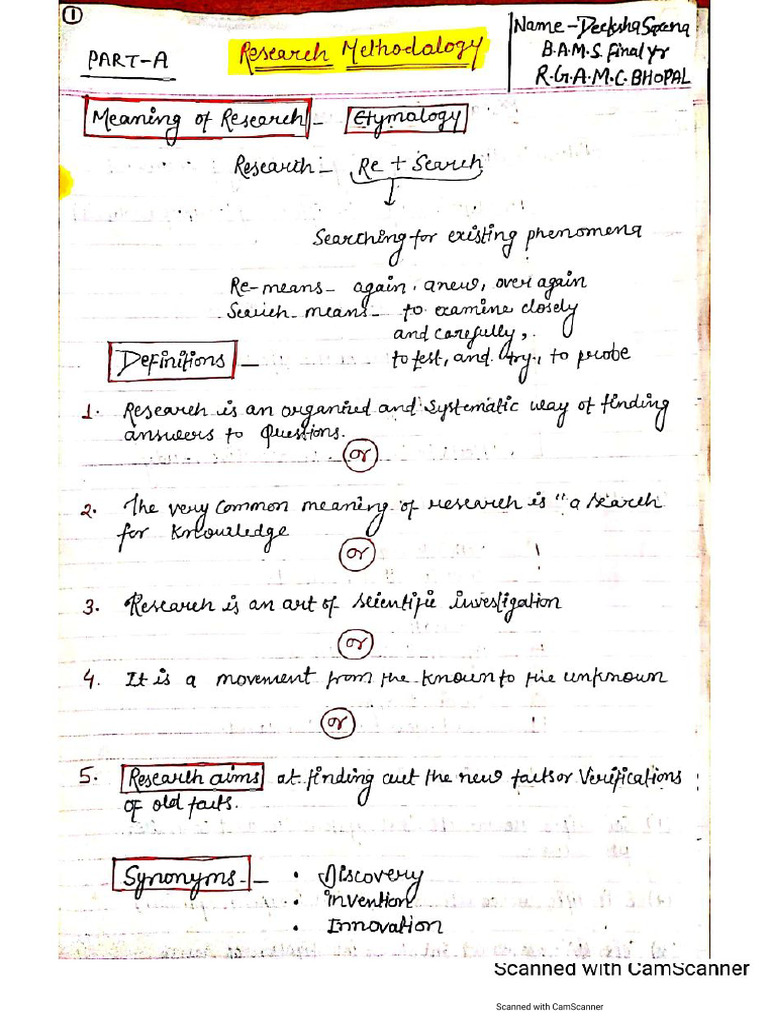 ①
PART-A
Research Methodalogy
Name - Deeksha Saxena
B.A.M.S. final yr
R.G.A.M.C. BHOPAL
Meaning of Research - Etymalogy
Research - Re + Search
Searching for existing phenomena
Re-means - again, anew, over again
Search means - to examine closely
and carefully,
to test, and try, to probe
Definitions -
1. Research is an organized and systematic way of finding
answers to Questions.
or
2. The very common meaning of research is "a search
for knowledge
or
3. Research is an art of scientific investigation
or
4. It is a movement from the known to the unknown
or
5. Research aims at finding out the new facts or Verifications
of old facts.
Synonyms - • Discovery
• invention
• Innovation
Scanned with CamScanner
Scanned with CamScanner